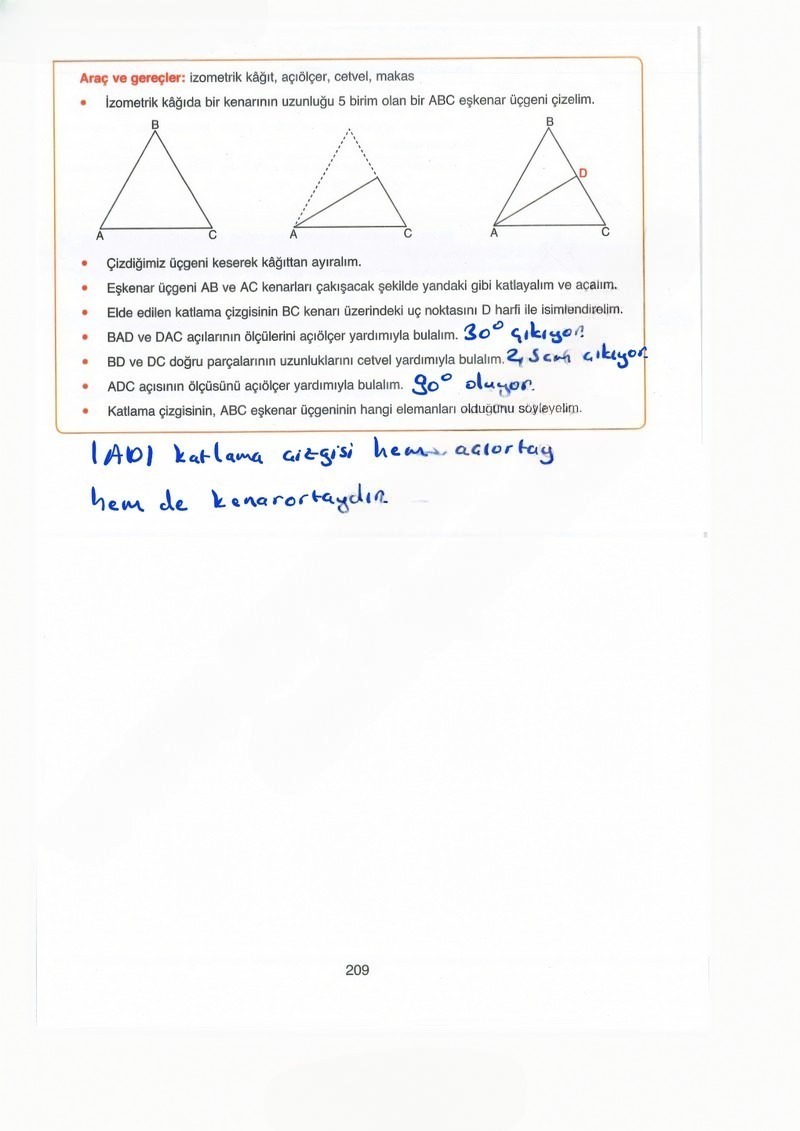 Araç ve gereçler: izometrik kâğıt, açıölçer, cetvel, makas
• İzometrik kâğıda bir kenarının uzunluğu 5 birim olan bir ABC eşkenar üçgeni çizelim.
B B
D
A C A C A C
• Çizdiğimiz üçgeni keserek kâğıttan ayıralım.
• Eşkenar üçgeni AB ve AC kenarları çakışacak şekilde yandaki gibi katlayalım ve açalım.
• Elde edilen katlama çizgisinin BC kenarı üzerindeki uç noktasını D harfi ile isimlendirelim.
• BAD ve DAC açılarının ölçülerini açıölçer yardımıyla bulalım. 30° çıkıyor.
• BD ve DC doğru parçalarının uzunluklarını cetvel yardımıyla bulalım. 2,5cm çıkıyor
• ADC açısının ölçüsünü açıölçer yardımıyla bulalım. 90° oluyor.
• Katlama çizgisinin, ABC eşkenar üçgeninin hangi elemanları olduğunu söyleyelim.
|AD| katlama çizgisi hem açıortay
hem de kenarortaydır.
209